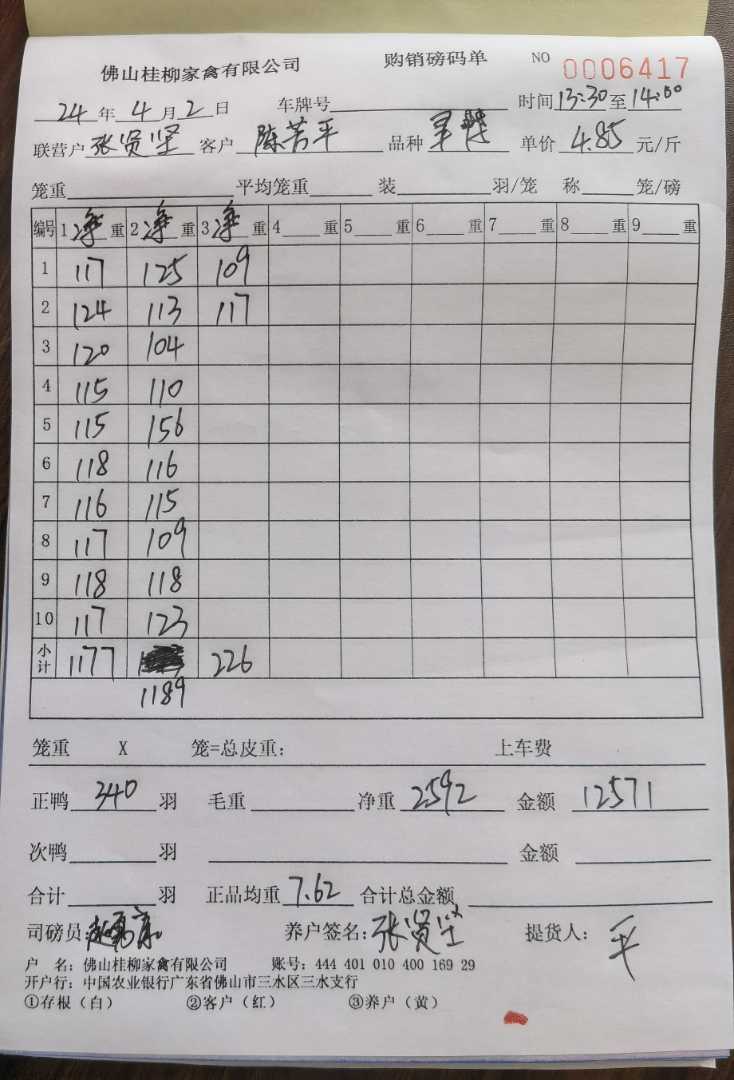 佛山桂柳家禽有限公司 购销磅码单 NO 0006417
24年4月2日 车牌号 时间13:30至14:00
联营户 张贤坚 客户 陈芳平 品种 单价 4.85 元/斤
笼重 平均笼重 装 羽/笼 称 笼/磅
编号 1净重 2净重 3净重 4 重 5 重 6 重 7 重 8 重 9 重
1 117 125 109
2 124 113 117
3 120 104
4 115 110
5 115 156
6 118 116
7 116 115
8 117 109
9 118 118
10 117 123
小计 1177 226
1189
笼重 X 笼=总皮重： 上车费
正鸭 340 羽 毛重 净重 2592 金额 12571
次鸭 羽 金额
合计 羽 正品均重 7.62 合计总金额
司磅员： 养户签名：张贤坚 提货人：平
户 名：佛山桂柳家禽有限公司 账号：444 401 010 400 169 29
开户行：中国农业银行广东省佛山市三水区三水支行
①存根（白） ②客户（红） ③养户（黄）